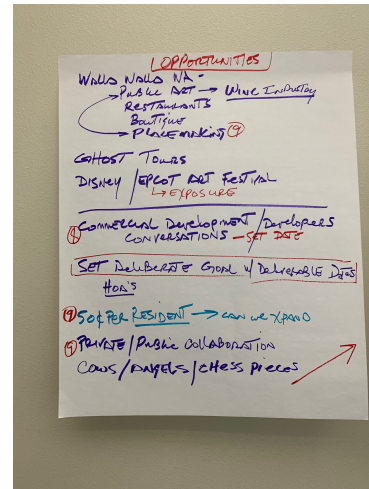 OPPORTUNITIES
WALLA WALLA WA -
PUBLIC ART → WINE INDUSTRY
RESTAURANTS
BOUTIQUE
PLACEMAKING 9
GHOST TOURS
DISNEY / EPCOT ART FESTIVAL
↳ EXPOSURE
COMMERCIAL DEVELOPMENT / DEVELOPERS
CONVERSATIONS - SET DATE
SET DELIBERATE GOAL w/ DELIVERABLE DATES
HOA'S
9 50¢ PER RESIDENT → CAN WE XPAND
9 PRIVATE / PUBLIC COLLABORATION
COWS / ANGELS / CHESS PIECES